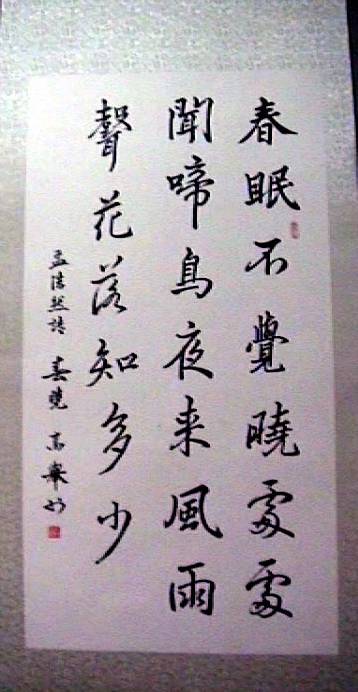 春眠不覺曉處處
聞啼鳥夜来風雨
聲花落知多少
孟浩然詩 春曉 高